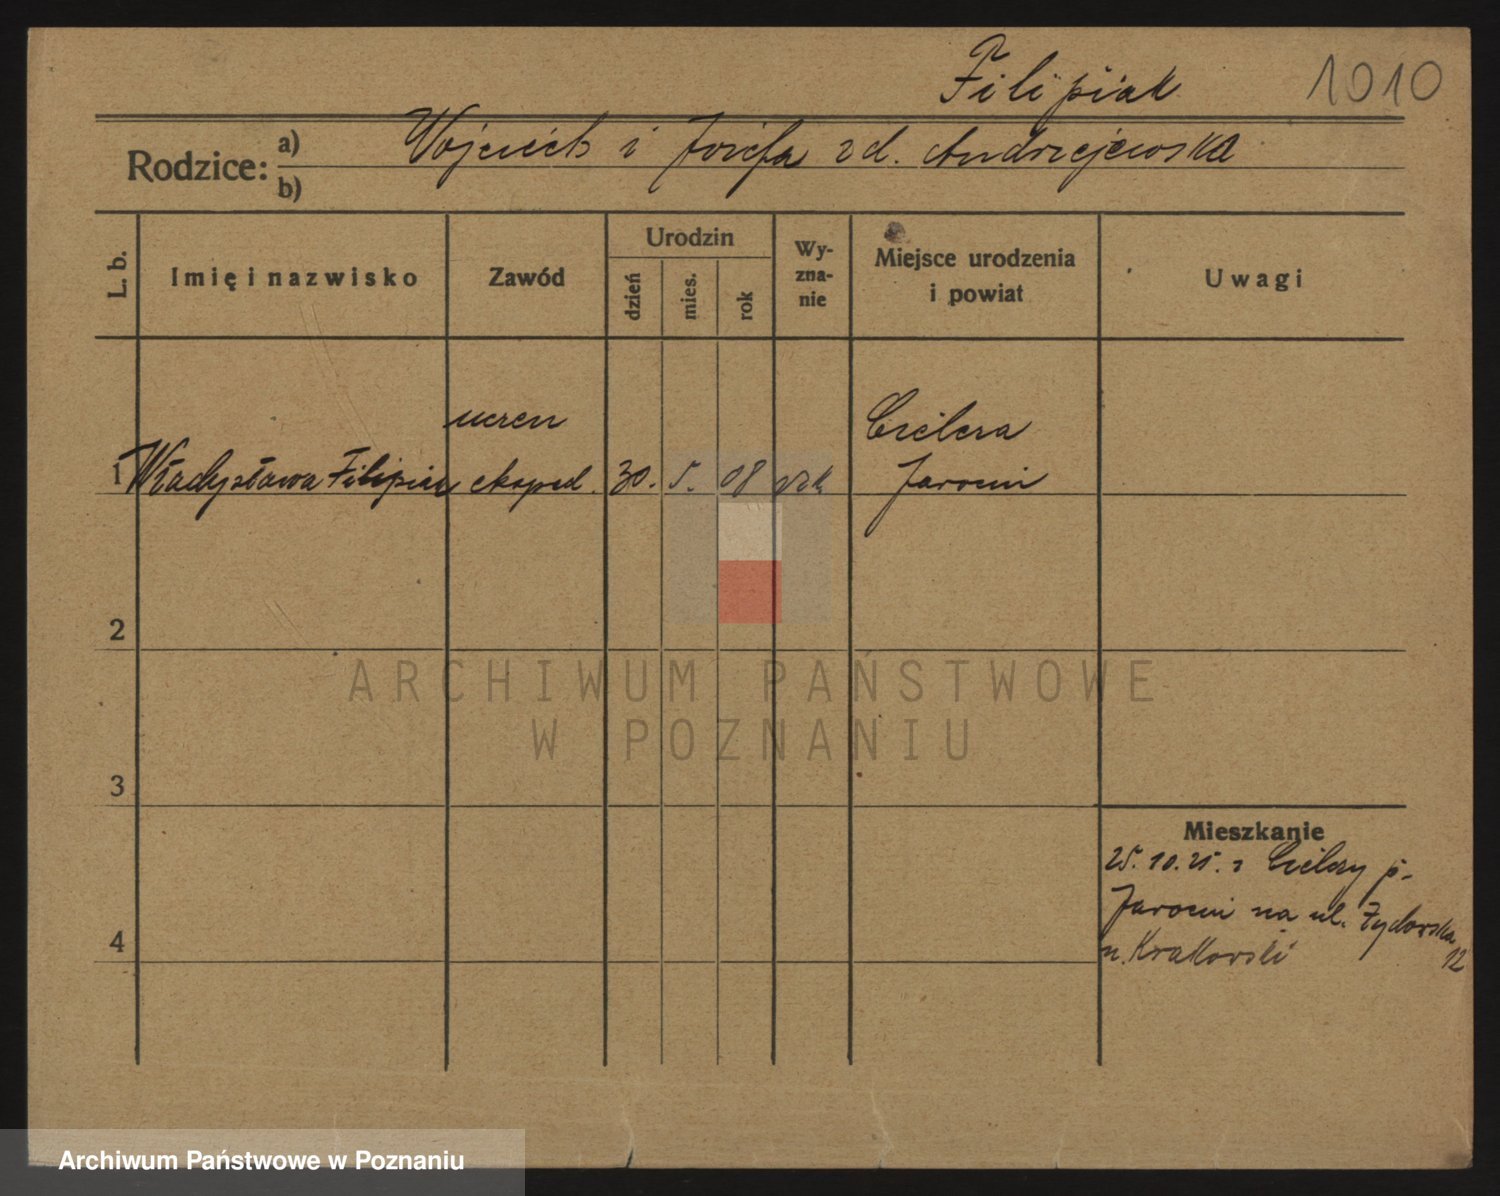 Filipiak
1010
Rodzice: a) Wojciech i Józefa zd. Andrzejewska
b)
L. b.
Imię i nazwisko
Zawód
Urodzin
dzień
mies.
rok
Wy-
zna-
nie
Miejsce urodzenia
i powiat
Uwagi
uczen
Cielcza
1 Władysława Filipiak eksped. 30. 5. 08 rzk Jarocin
2
ARCHIWUM PAŃSTWOWE
W POZNANIU
3
Mieszkanie
25.10.25. z Cielczy p.
Jarocin na ul. Żydowska
12
u. Krakowski
4
Archiwum Państwowe w Poznaniu